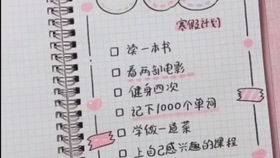 寒假计划
读一本书
看两部电影
健身四次
记下1000个单词
学做一道菜
上自己感兴趣的课程